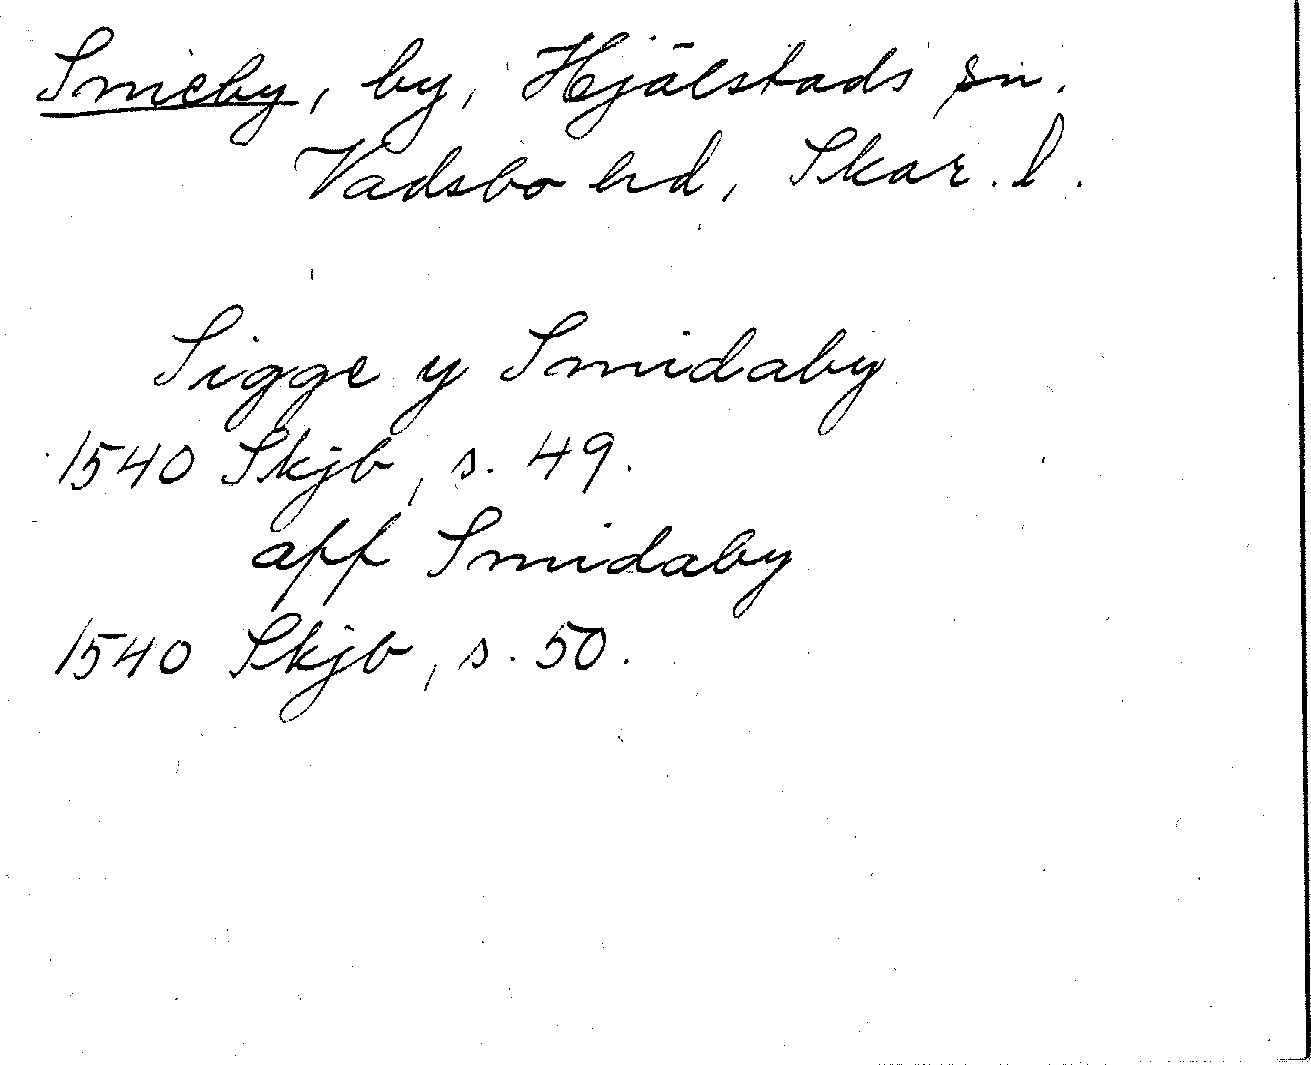 Smeby, by, Hjälstads sn.
Vadsbo hd, Skar. l.
Sigge y Smidaby
1540 Skjb, s. 49.
aff Smidaby
1540 Skjb, s. 50.